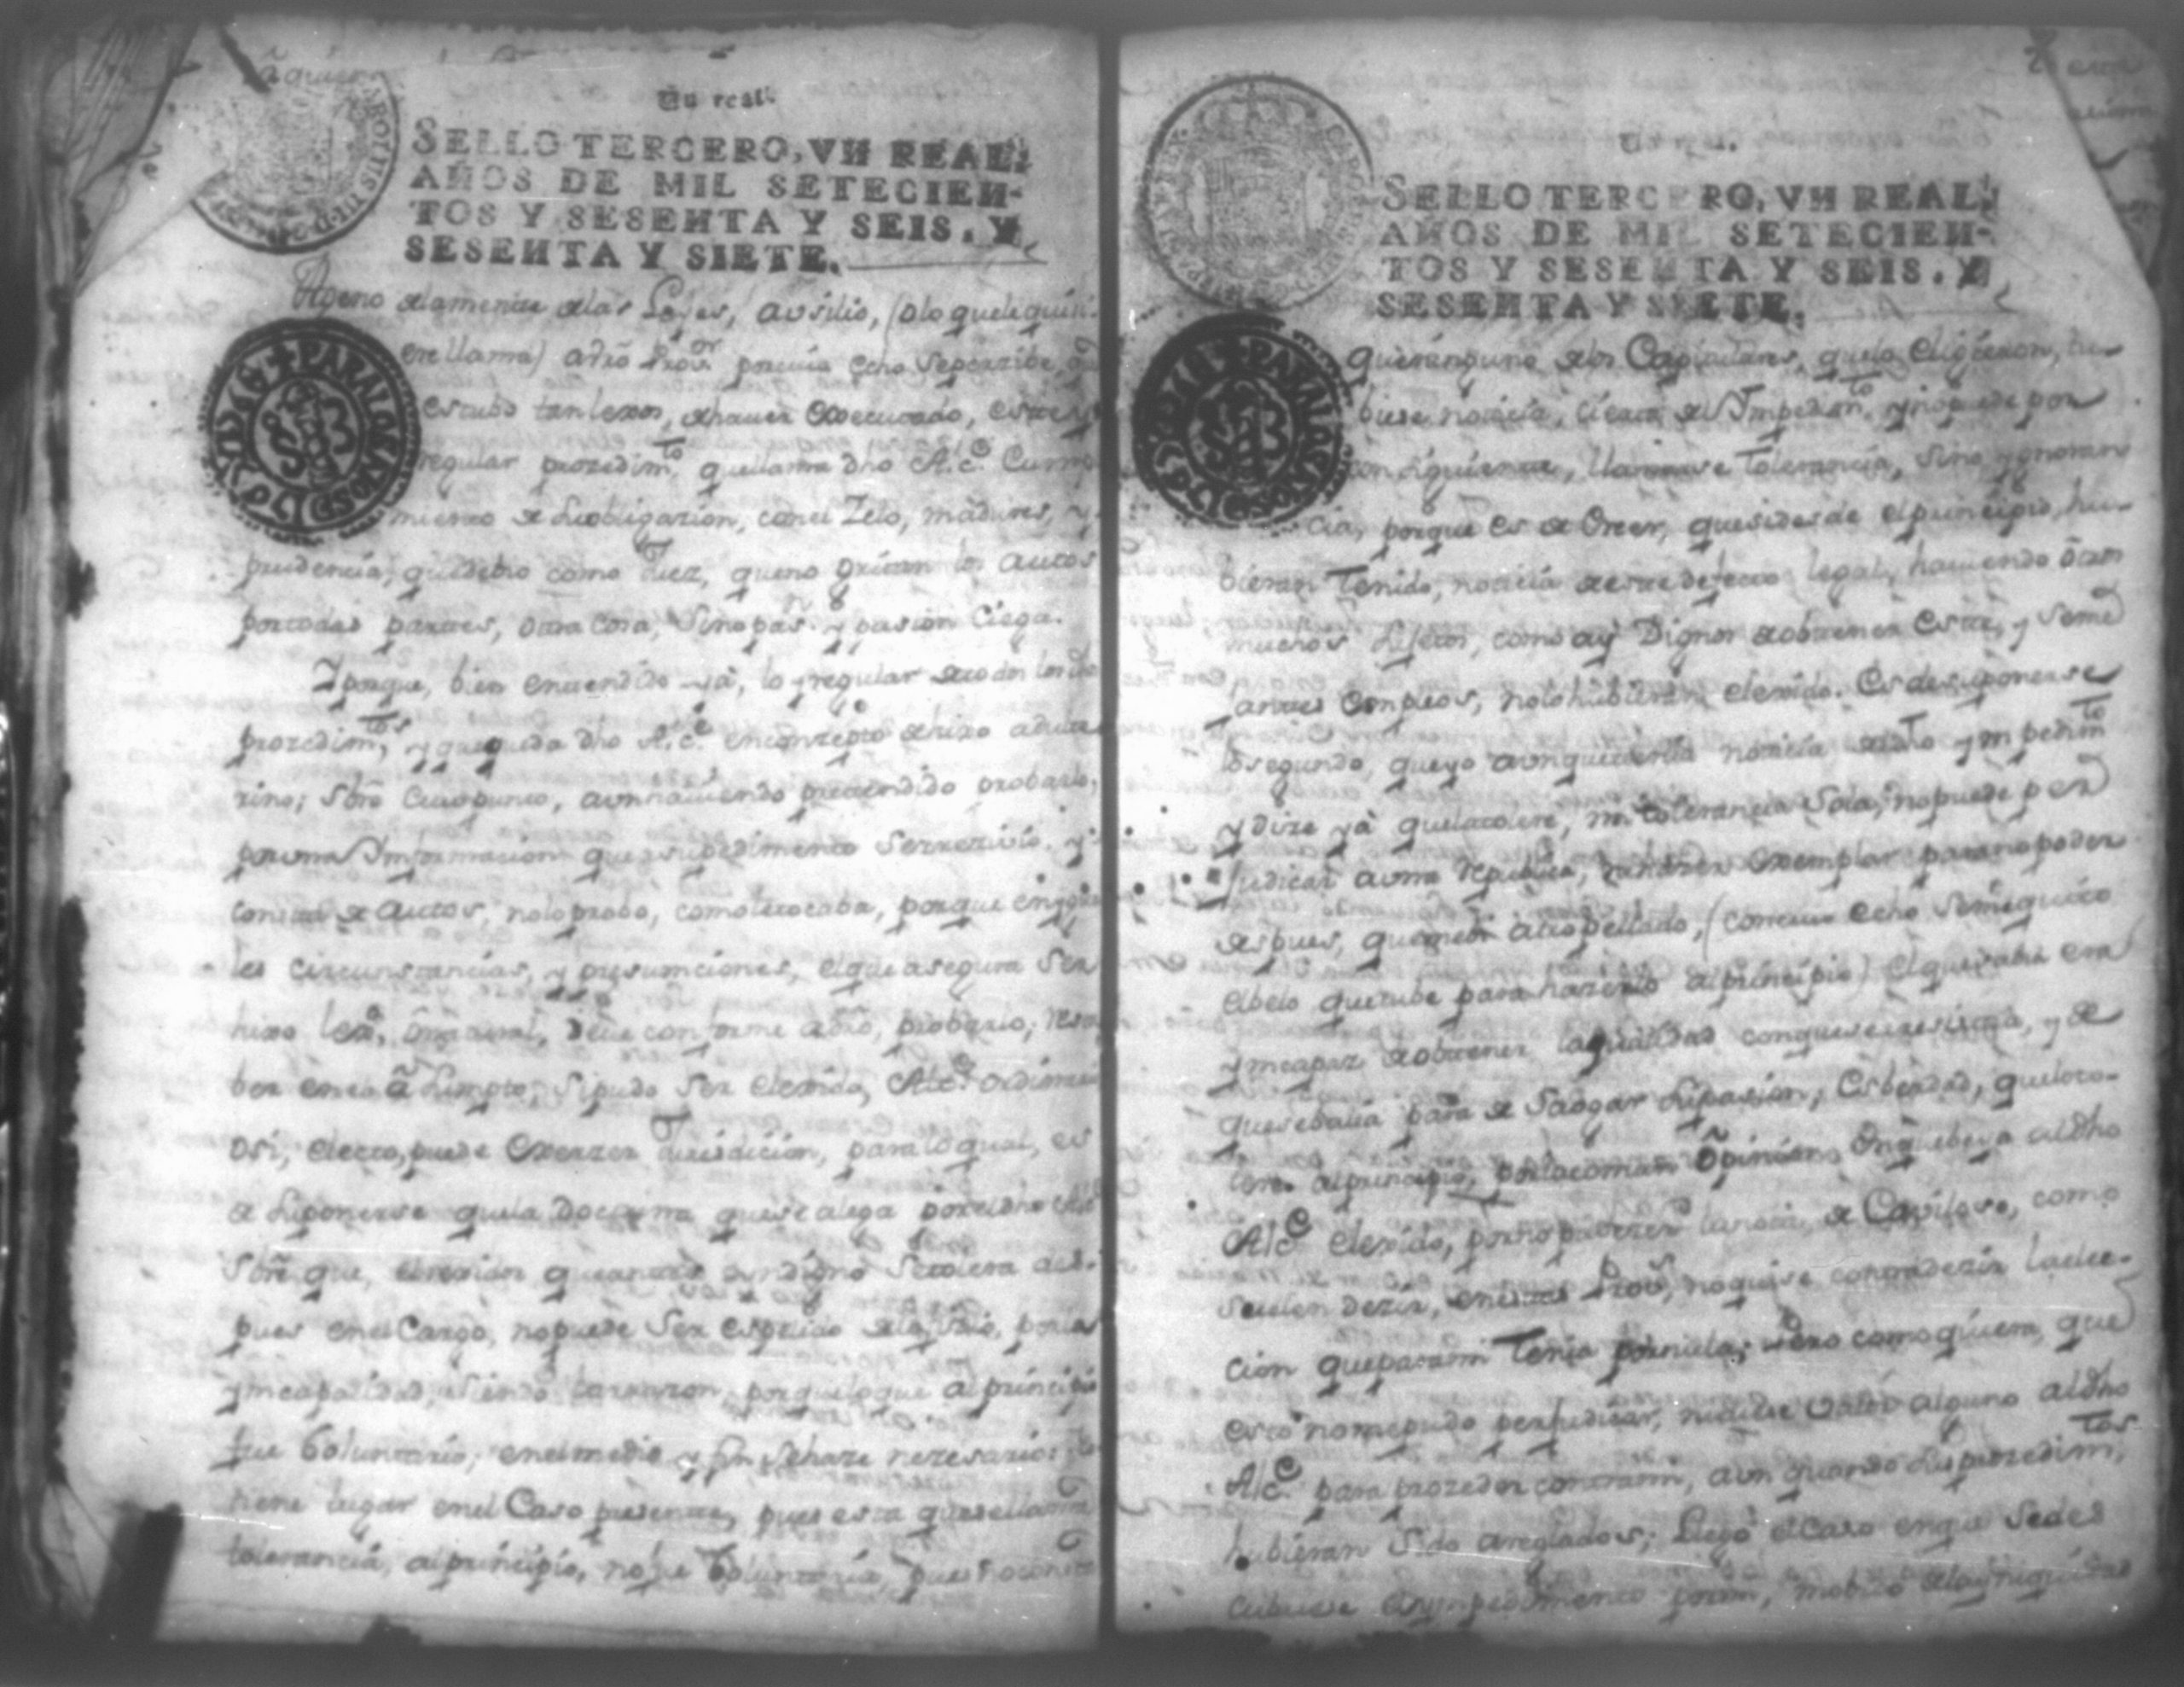 Un real.
SELLO TERCERO, VN REAL,
AÑOS DE MIL SETECIEN-
TOS Y SESENTA Y SEIS. Y
SESENTA Y SIETE.
Ageno de la mente de las Leyes, ausilio, (o lo que le quisi-
ere llamar) a dho Provor.
estubo tan lexos, de haver executado, este
regular prozedimto, que llama dho Alce. Cum
miento de su obligazion, con el Zelo, madures, y
prudencia, que debio como Juez, que no gritan los autos
por todas partes, otra cosa, sino pasn. y pasion Ciega.
Y porque, bien entendido ya, lo yrregular de todos los
prozedimtos, y que queda dho Alce. en conzepto de hixo adulte
rino; sobre Cuio punto, aun haviendo pretendido probarlo,
por una Informacion que a su pedimento se rezivio, y
consta de Autos, no lo probo, como le tocaba, porque en
les circunstancias, y presumciones, el que asegura ser
hixo lexo. o natural, deve conforme a dro, probarlo; resta
ber en si pudo ser elexido, Alce. ordinario
o si, electo, puede exerzer Jurisdicion, para lo qual, es
de suponerse que la Doctrina que se alega por el dho Alce
sobre que, el rexion que antes yndigno se tolera des-
pues en el Cargo, no puede ser espelido de la silla, por la
yncapasidad, siendo la razon, porque lo que al principio
fue Voluntario, en el medio y fin se haze nezesario: no
tiene lugar en el Caso presente, pues esta que se llama
tolerancia, al principio, no fue Voluntaria, pues no consta
SELLO TERCERO, VN REAL,
AÑOS DE MIL SETECIEN-
TOS Y SESENTA Y SEIS. Y
SESENTA Y SIETE.
que ninguno de los Capitulares, que lo eligieron, tu-
biese noticia, cierta del Impedimto. y no puede por
consiguiente, llamarse tolerancia, sino ygnoran
cia, porque es de Creer, que si desde el principio, hu-
bieran tenido, noticia de este defecto legal, haviendo otros
muchos sujetos, como ay Dignos de obtener este, y seme
jantes Empleos, no lo hubieran elexido. Es de suponerse
lo segundo, que yo aunque tenia noticia de dho ympedimto
y dize ya que la tolere, mi tolerancia sola, no puede per
judicar a una republica, ni traer exemplar para no poder
despues, que me bi atropellado, (con cuio echo se me quito
el belo que tube para hazerlo al principio) el que sabia era
yncapaz de obtener la qualidad con que se rresistia, y de
que se balia para desaogar su pasion; Es berdad, que lo to-
lere al principio, por la comun opinion, en que beya al dho
Alce elexido, por no padezer la nota, de Caviloso, como
suelen dezir, en estas Provs, no quise contradezir la elec-
cion que para mi tenia por nula; Pero como quiera, que
esto no me pudo perjudicar, ni darle valor alguno al dho
Alce. para prozeder contra mi, aun quando sus prozedimtos,
hubieran sido arreglados; Llego el Caso en que se des
cubriese el ympedimento por mi, mobido de la yniquidad